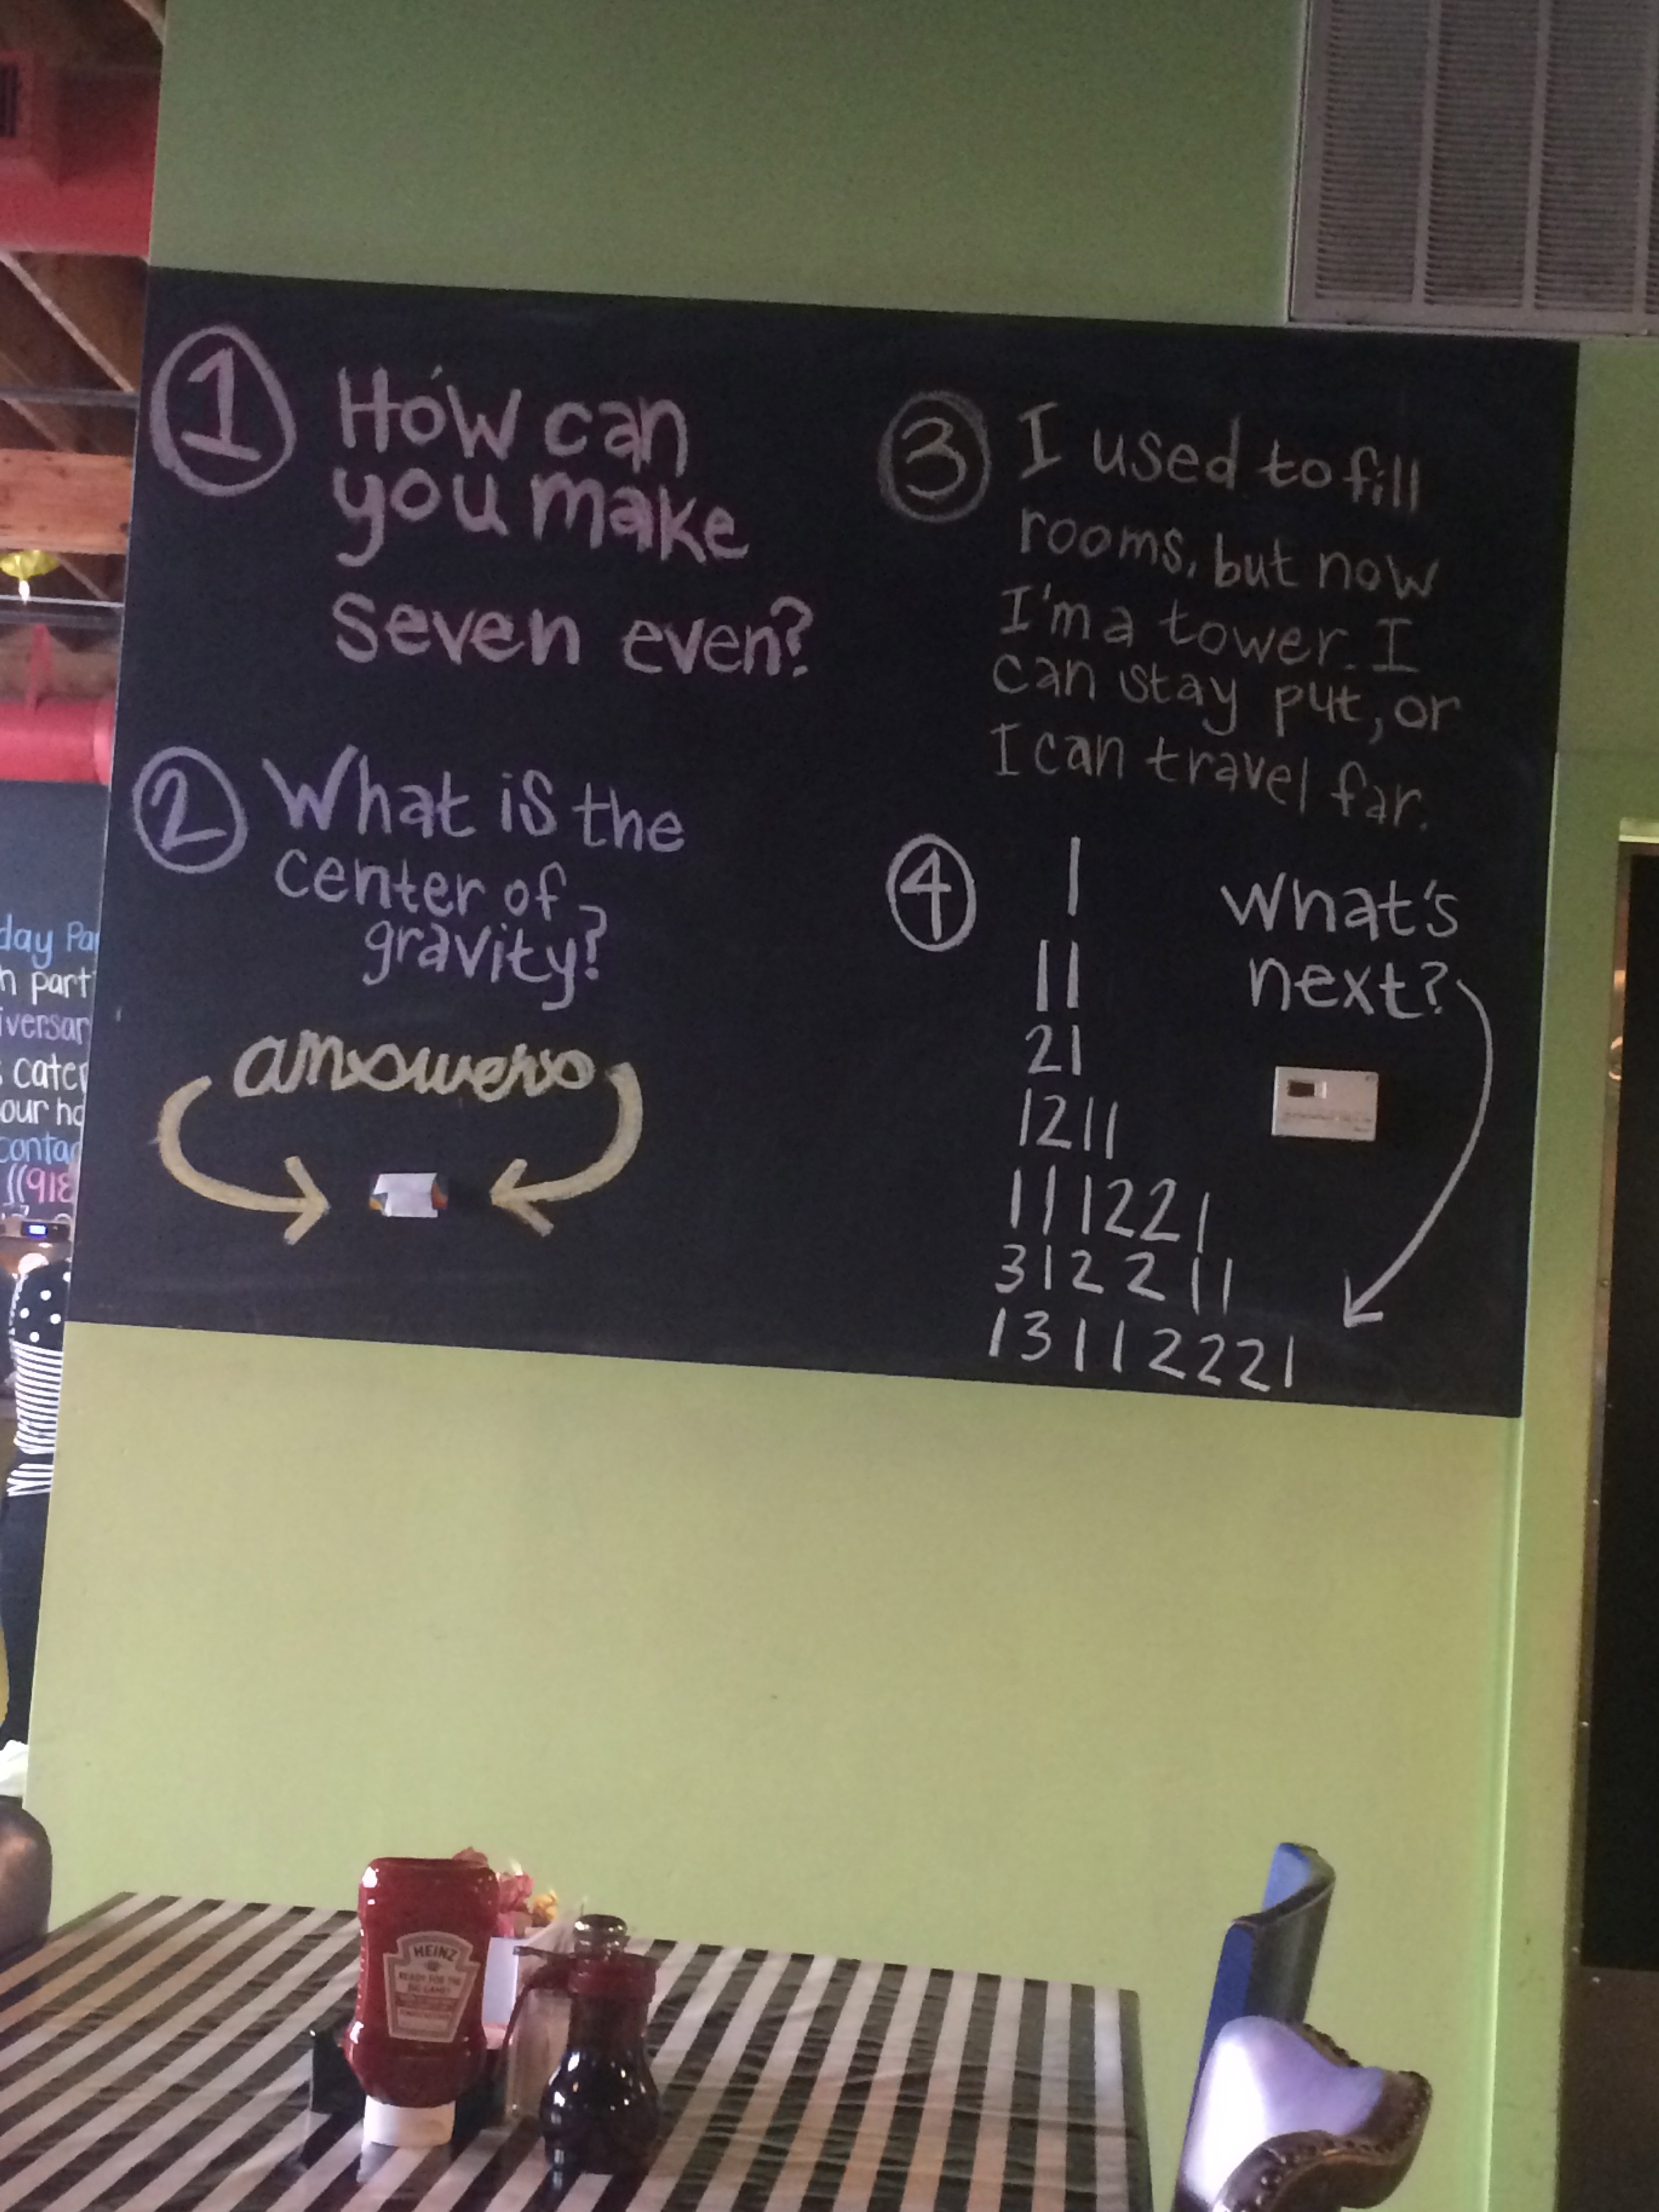 1
How can
you make
seven even?
2
What is the
center of
gravity?
answers
3
I used to fill
rooms, but now
I'm a tower. I
can stay put, or
I can travel far.
4
1
11
21
1211
111221
312211
13112221
What's
next?
day Pa
h part
iversar
cater
our ho
contac
((918
HEINZ
READY FOR THE
BIG GAME?